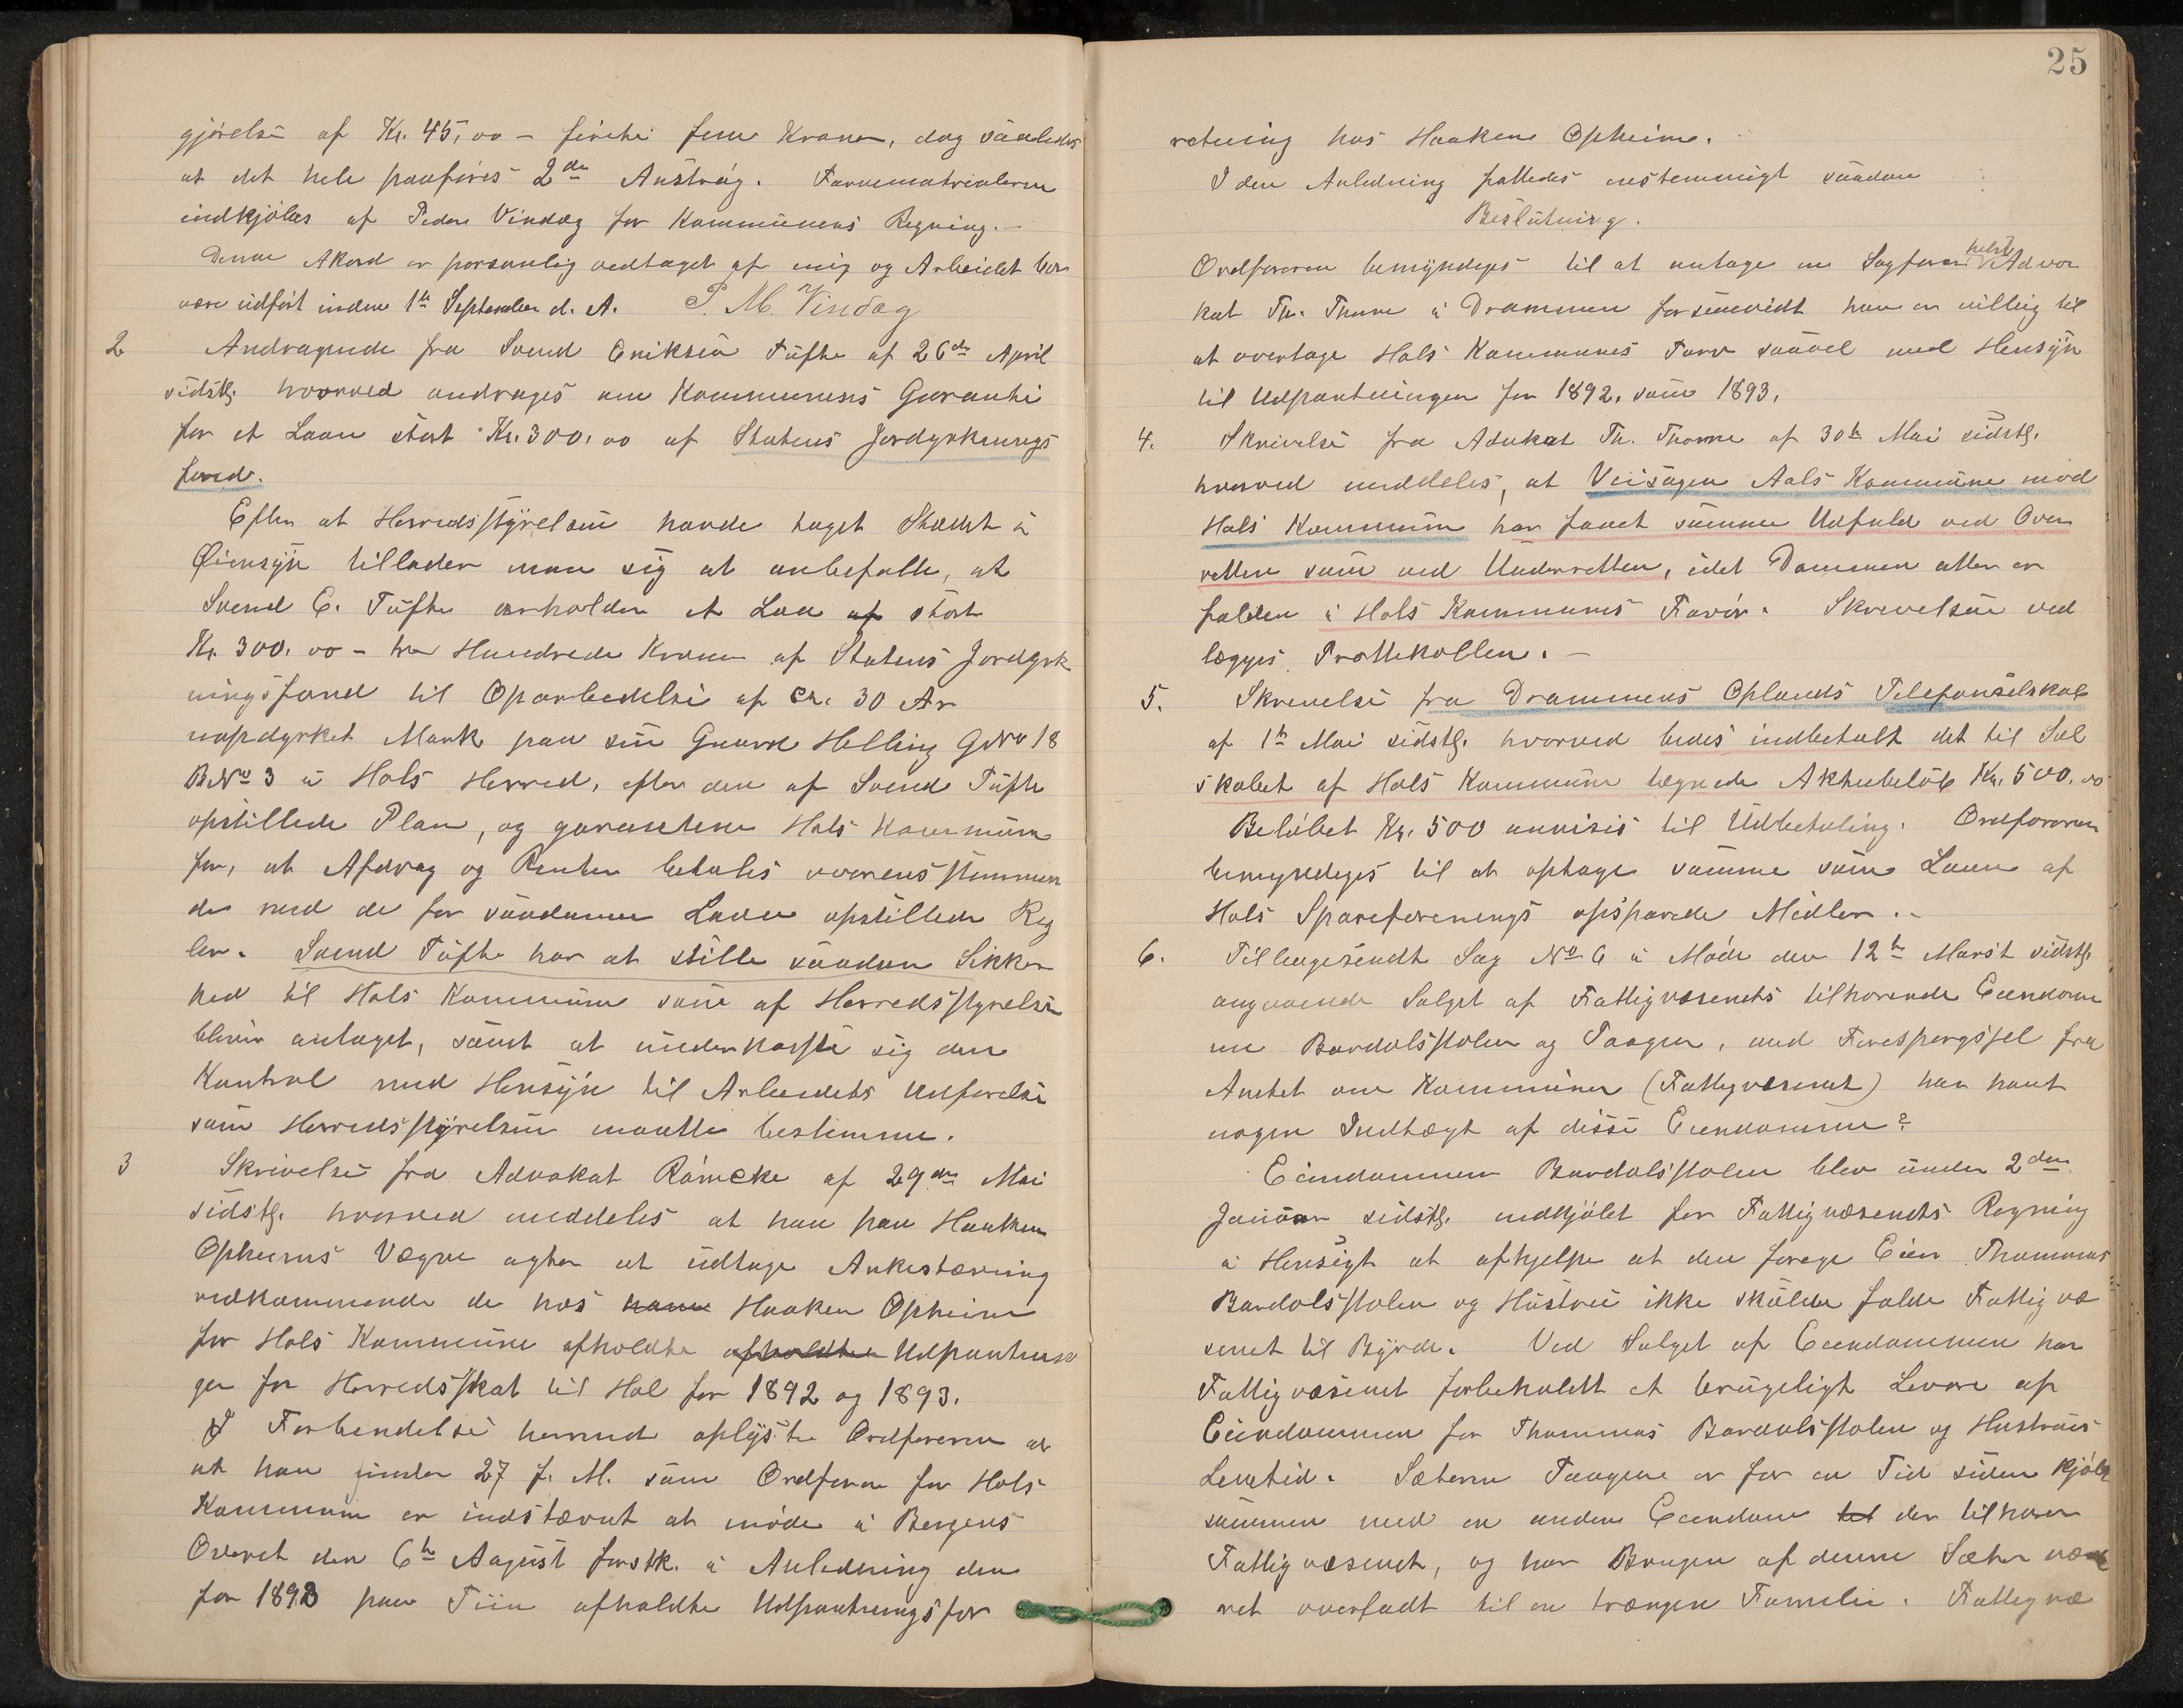 gjörelse af Kr. 45,00 – förti fem Kroner, dog saaledes
at det hele paaføres 2den Anstrøg. Farvematerialerne
indkjöbes af Peder Vindøg for Kommunens Regning. –
Denne Akord er personlig vedtaget af mig og Arbeidet bör
være udfört inden 1te September d. A. P. M. Vindøg
2 Andragende fra Svend Eriksen Tufte af 26de April
sidstl. hvorved andrages om Kommunens Garanti
for et Laan stort Kr. 300,00 af Statens Jordyrknings
fond.
Efter at Herredsstyrelsen havde taget Stedet i
Øiensyn tillader man sig at anbefalle, at
Svend E. Tufte erholder et Laa af stort
Kr. 300,00 – tre Hundrede Kroner af Statens Jordyrk
ningsfond til Oparbedelse af ca. 30 Ar
uopdyrket Mark paa sin Gaard Helling GNo 18
BNo 3 i Hols Herred, efter den af Svend Tufte
opstillede Plan, og garanterer Hols Kommune
for, at Afdrag og Renter betales overensstemmen
de med de for saadanne Laan opstillede Reg
ler. Svend Tufte har at stille saadan Sikker
hed til Hols Kommune som af Herredsstyrelsen
bliver antaget, samt at underkaste sig den
Kontrol med Hensyn til Arbeidets Udförelse
som Herredsstyrelsen maatte bestemme.
3 Skrivelse fra Advokat Römcke af 29de Mai
sidstl. hvorved meddeles at han paa Haaken
Opheims Vegne agter at udtage Ankestævning
vedkommende de hos ham Haaken Opheim
for Hols Kommune afholdte afholdte Udpantnin
ger for Herredsskat til Hol for 1892 og 1893.
I Forbendelse hermed oplyste Ordføreren at
at han under 27 f. M. som Ordfører for Hols
Kommune er indstævnt at møde i Bergens
Overret den 6te August førstk. i Anledning den
for 1893 paa Tiin afholdte Udpantningsfor
25
retning hos Haaken Opheim.
I den Anledning fattedes enstemmigt saadan
Beslutning.
Ordføreren bemyndiges til at antage en Sagfører helst Advo
kat Th. Thorne i Drammen forsaavidt han er villig til
at overtage Hols Kommunes Tarv saavel med Hensyn
til Udpantningen for 1892, som 1893.
4. Skrivelse fra Adukat Th. Thorne af 30te Mai sidstl.
hvorved meddeles, at Veisagen Aals Kommune mod
Hols Kommune har faaet samme Udfald ved Over
retten som ved Underretten, idet Dommen atter er
falden i Hols Kommunes Favør. Skrivelsen ved
lægges Prottekollen. –
5. Skrivelse fra Drammens Oplands Telefonselskab
af 1te Mai sidstl. hvorved bedes indbetalt det til Sel
skabet af Hols Kommune tegnede Aktiebeløb Kr. 500,00
Beløbet Kr. 500 anvises til Udbetaling. Ordføreren
bemyndiges til at optage samme som Laan af
Hols Spareforenings opsparede Midler. –
6. Tilbagesendt Sag No 6 i Møde den 12te Marst sidstl.
angaaende Salget af Fattigvæsenets tilhørende Eiendom
me Bardolsstølen og Taagen, med Forespørgssel fra
Amtet om Kommunen (Fattigvæsenet) har havt
nogen Indtægt af disse Eiendomme?
Eiendommen Bardolsstølen blev under 2den
Januar sidstl. indkjöbt for Fattigvæsenets Regning
i Hensigt at afhjelpe at den forige Eier Thommas
Bardolsstølen og Hustru ikke skulde falde Fattigvæ
senet til Byrde. Ved Salget af Eiendommen har
Fattigvæsenet forbeholdt et brugeligt Levøre af
Eiendommen for Thommas Bardolsstølen og Hustrues
Levetid. Sæteren Taagene er for en Tid siden kjöbt
sammen med en anden Eiendom tel der tilhører
Fattigvæsenet, og har Brugen af denne Sæter væ
ret overladt til en trængen Familie. Fattigvæ